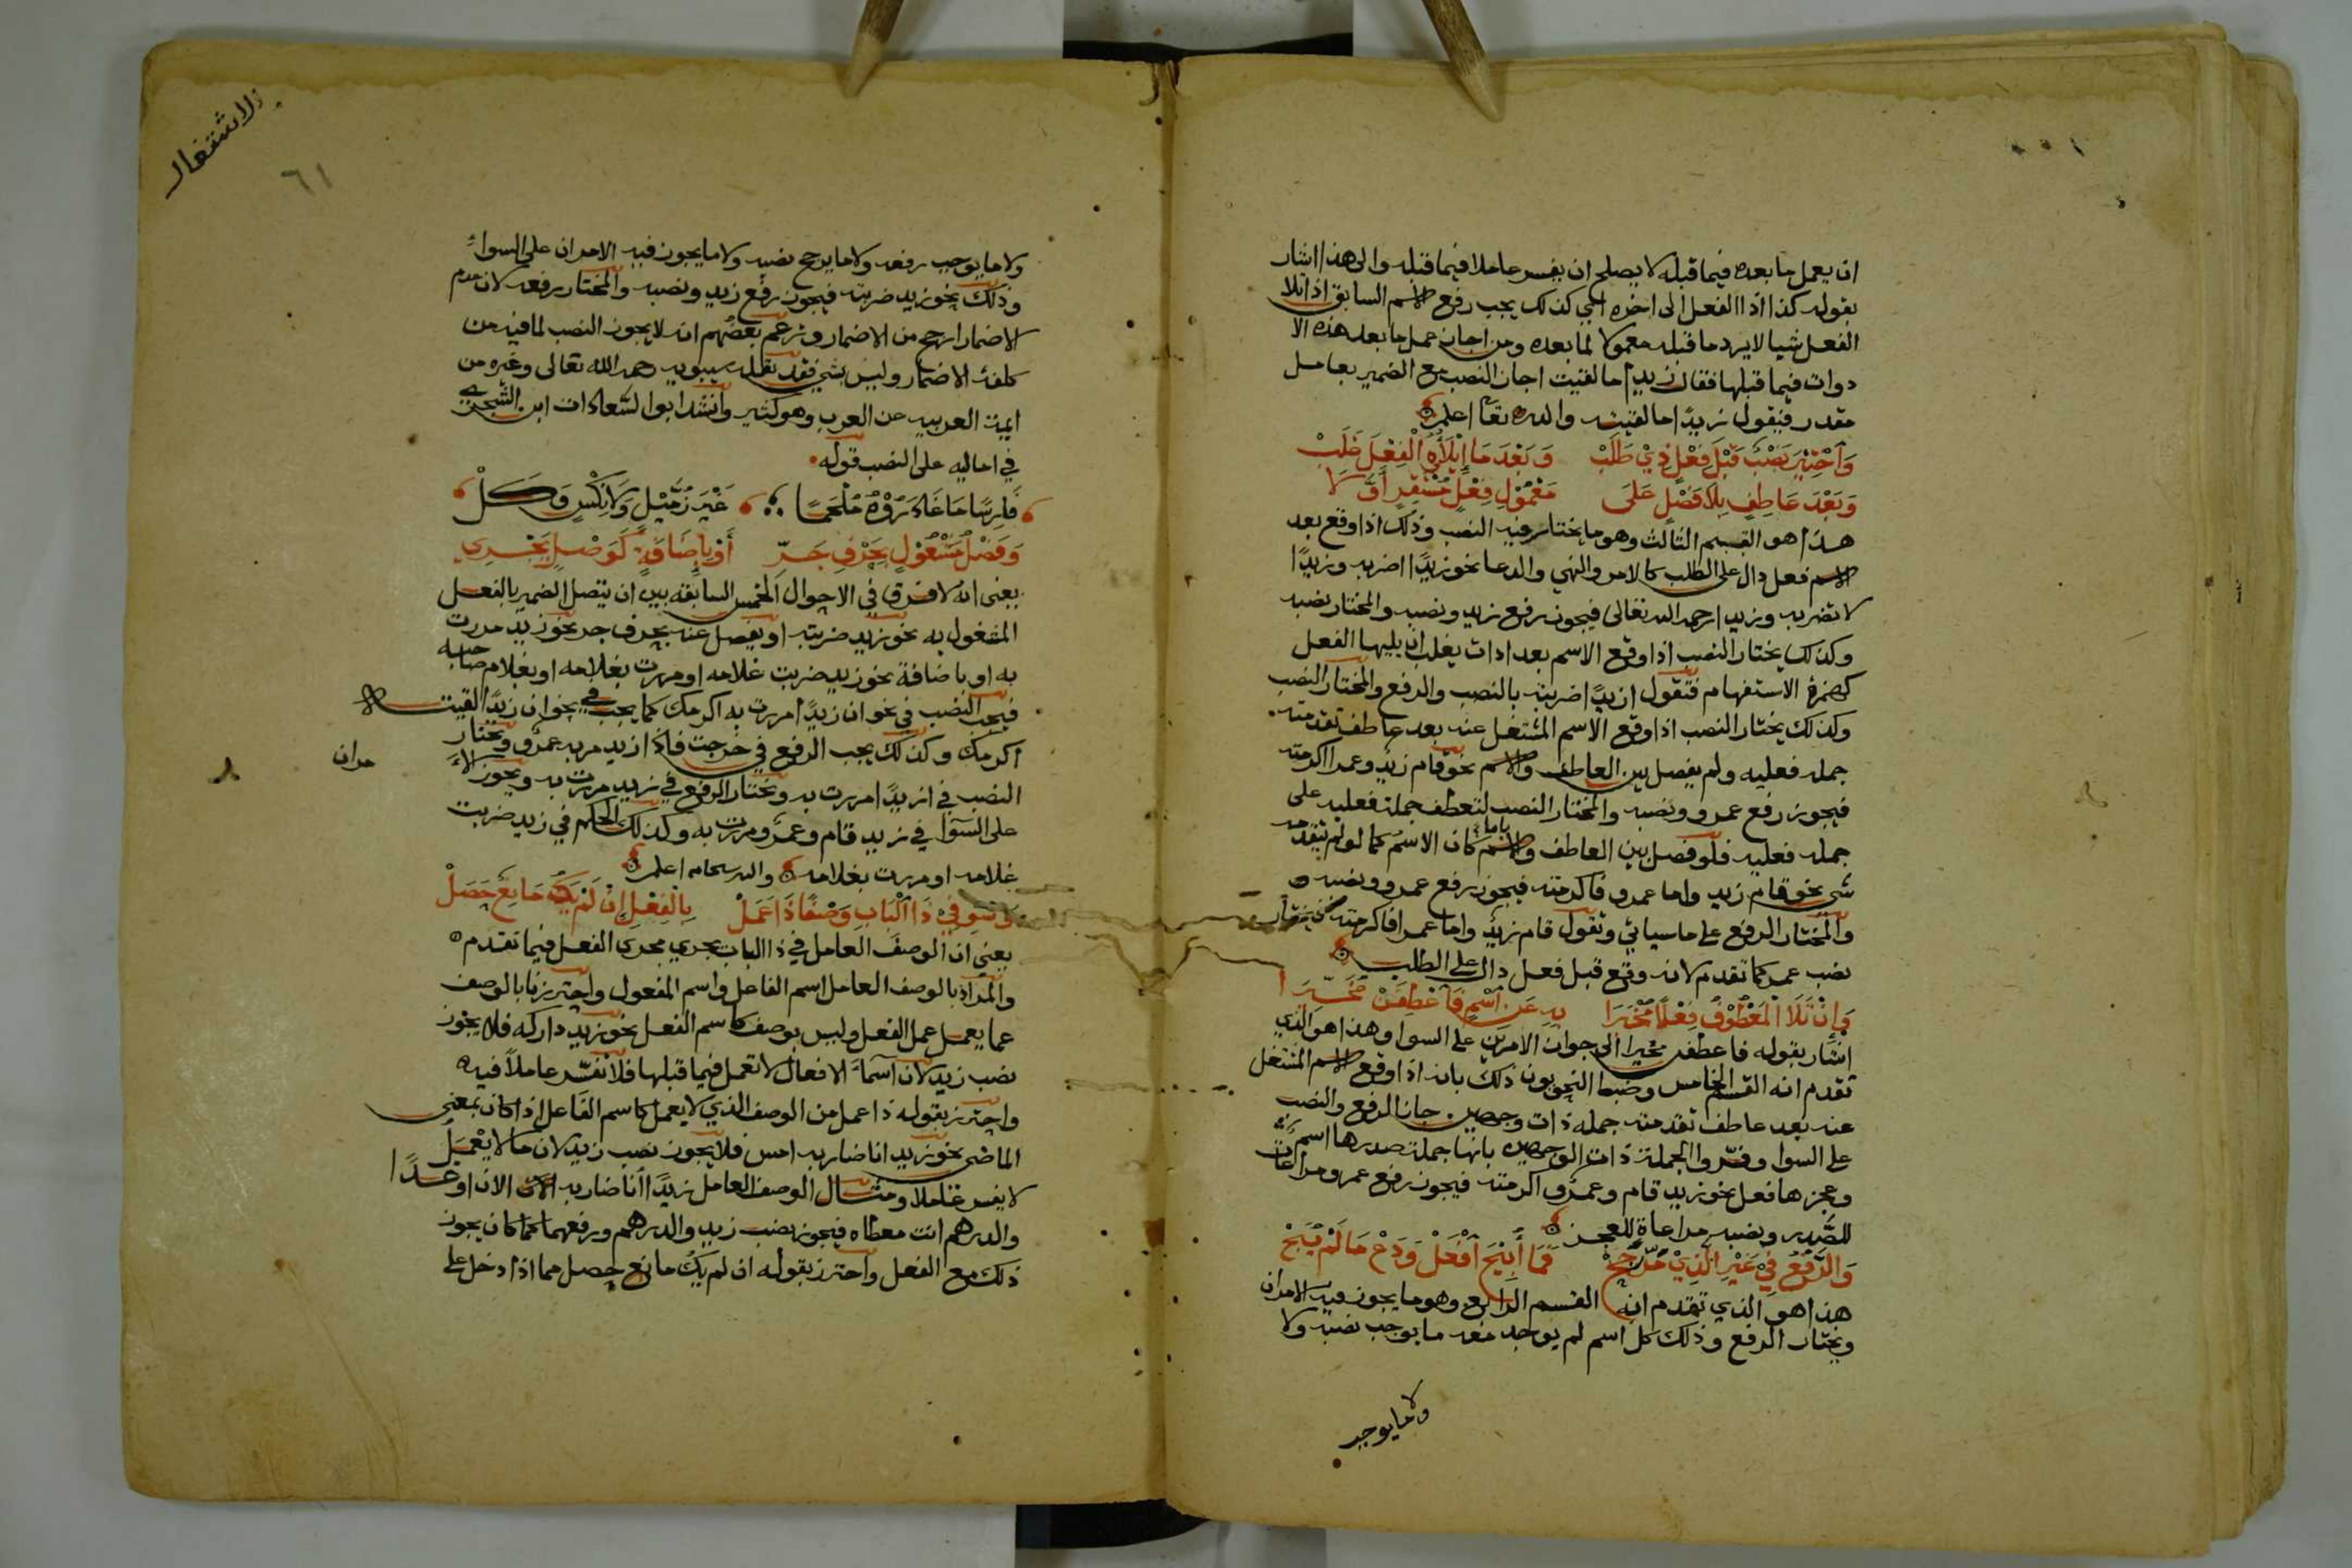 ان يعمل ما بعده فيما قبله لا يصلح ان يفسر عاملا فيما قبله والى هذا اشار
بقوله كذا اذا الفعل الى اخره اي كذلك يجب رفع الاسم السابق اذا تلا
الفعل شيا لا يرد ما قبله معمولا لما بعده ومن اجاز عمل ما بعد هذه الا
دوات فيما قبلها فقال زيدا ما لقيت اجاز النصب مع الضمير بعامل
مقدر فيقول زيدًا ما لقيته والله تعا اعلم
وَاخْتِيْرَ نَصْبٌ قَبْلَ فِعْلٍ ذِيْ طَلَبْ وَبَعْدَ مَا إِيْلَاؤُهُ الْفِعْلَ غَلَبْ
وَبَعْدَ عَاطِفٍ بِلَا فَصْلٍ عَلَى مَعْمُوْلِ فِعْلٍ مُسْتَقِرٍّ أَوَّلَا
هذا هو القسم الثالث وهو ما يختار فيه النصب وذلك اذا وقع بعد
الاسم فعل دال على الطلب كالامر والنهي والدعا نحو زيدًا اضربه وزيدًا
لا تضربه وزيدا رحمه الله تعالى فيجوز رفع زيد ونصبه والمختار نصبه
وكذلك يختار النصب اذا وقع الاسم بعد ادات يغلب ان يليها الفعل
كهمزة الاستفهام فتقول ازيدًا ضربته بالنصب والرفع والمختار النصب
وكذلك يختار النصب اذا وقع الاسم المشتغل عنه بعد عاطف تقدمته
جمله فعليه ولم يفصل بين العاطف والاسم نحو قام زيد وعمرا اكرمته
فيجوز رفع عمرو ونصبه والمختار النصب لتعطف جملة فعليه على
جمله فعليه فلو فصل بين العاطف والاسم باما كان الاسم كما لو لم يتقدمه
شي نحو قام زيد واما عمرو فاكرمته فيجوز رفع عمرو ونصبه
والمختار الرفع على ما سياتي وتقول قام زيد واما عمرا فاكرمه فيختار
نصب عمر كما تقدم لانه وقع قبل فعل دال على الطلب
وَإِنْ تَلَا الْمَعْطُوْفُ فِعْلًا مُخْبَرَا بِهِ عَنِ اسْمٍ فَاعْطِفَنْ مُخَيَّرَا
اشار بقوله فاعطفن مخيرا الى جواز الامرين على السوا وهذا هو الذي
تقدم انه القسم الخامس وضبط النحويون ذلك بانه اذا وقع الاسم المشتغل
عنه بعد عاطف تقدمته جمله ذات وجهين جاز الرفع والنصب
على السوا وفسروا الجملة ذات الوجهين بانها جملة صدرها اسم
وعجزها فعل نحو زيد قام وعمرو اكرمته فيجوز رفع عمرو مراعات
للصدر ونصبه مراعاة للعجز
وَالرَّفْعُ فِيْ غَيْرِ الَّذِيْ مَرَّ رَجَحْ فَمَا أُبِيْحَ افْعَلْ وَدَعْ مَا لَمْ يُبَحْ
هذا هو الذي تقدم انه القسم الرابع وهو ما يجوز فيه الامران
ويختار الرفع وذلك كل اسم لم يوجد معه ما يوجب نصبه ولا
ولا ما يوجب
الاشتغال
٦١
ولا ما يوجب رفعه ولا ما يرجح نصبه ولا ما يجوز فيه الامران على السواء
وذلك نحو زيد ضربته فيجوز رفع زيد ونصبه والمختار رفعه لان عدم
الاضمار ارجح من الاضمار وزعم بعضهم انه لا يجوز النصب لما فيه من
كلفة الاضمار وليس بشي فقد نقله سيبويه رحمه الله تعالى وغيره من
ايمة العربيه عن العرب وهو كثير وانشد ابوا لسعادات ابن الشجري
في اماليه على النصب قوله
فَارِسًا مَا غَادَرُوْهُ مُلْحَمًا غَيْرَ زُمَّيْلٍ وَلَا نِكْسٍ وَكَلْ
وَفَصْلُ مَشْغُوْلٍ بِحَرْفِ جَرِّ أَوْ بِإِضَافَةٍ كَوَصْلٍ يَجْرِي
يعنى انه لا فرق في الاحوال الخمس السابقه بين ان يتصل الضمير بالفعل
المشغول به نحو زيد ضربته او يفصل عنه بحرف جر نحو زيد مررت
به او باضافة نحو زيد ضربت غلامه او مررت بغلامه او بغلام صاحبه
فيجب النصب في نحو ان زيدًا مررت به اكرمك كما يجب في نحو ان زيدًا لقيته
اكرمك وكذلك يجب الرفع في خرجت فاذا زيد مر به عمرو ويختار
النصب في ازيدًا مررت به ويختار الرفع في زيد مررت به ويجوز الا
مران
على السوا في زيد قام وعمرو مررت به وكذلك الحكم في زيد ضربت
غلامه او مررت بغلامه والله سبحانه اعلم
وَسَوِّ فِيْ ذَا الْبَابِ وَصْفًا ذَا عَمَلْ بِالْفِعْلِ إِنْ لَمْ يَكُ مَانِعٌ حَصَلْ
يعني ان الوصف العامل في ذا الباب يجري مجرى الفعل فيما تقدم
والمراد بالوصف العامل اسم الفاعل واسم المفعول واحترزنا بالوصف
عما يعمل عمل الفعل وليس بوصف كاسم الفعل نحو زيد دراكه فلا يجوز
نصب زيد لان آسماء الافعال لا تعمل فيما قبلها فلا تفسر عاملا فيه
واحترز بقوله ذا عمل من الوصف الذي لا يعمل كاسم الفاعل اذا كان بمعنى
الماضي نحو زيد انا ضاربه امس فلا يجوز نصب زيد لان ما لا يعمل
لا يفسر عاملا ومثال الوصف العامل زيدًا انا ضاربه الان او غدًا
والدرهم انت معطاه فيجوز نصب زيد والدرهم ورفعهما كما كان يجوز
ذلك مع الفعل واحترز بقوله ان لم يك مانع حصل مما اذا دخل على